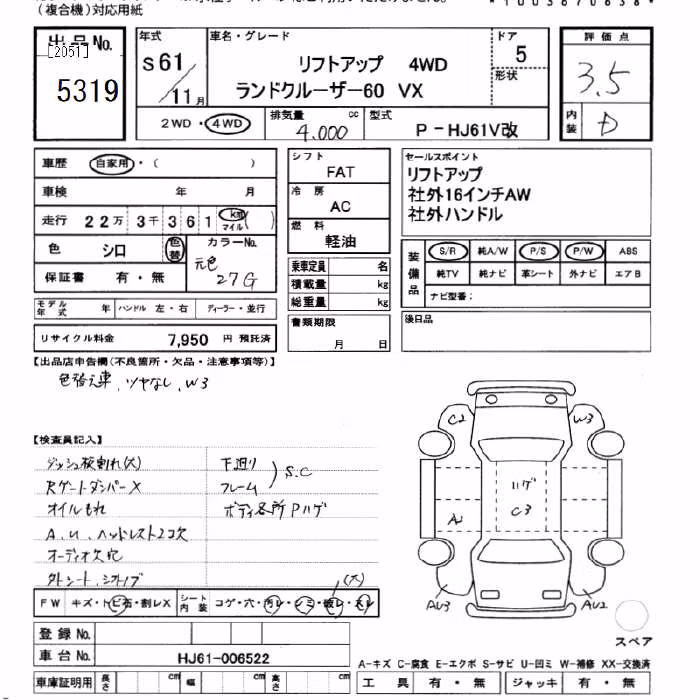 (複合機)対応用紙
*1003670638*
出品No.
[2051]
5319
年式
S61/11月
車名・グレード
リフトアップ 4WD
ランドクルーザー60 VX
ドア
5
形状
評価点
3.5
内装
D
2WD・4WD
排気量
4,000 cc
型式
P-HJ61V改
車歴 自家用・( )
車検 年 月
走行 22万 3千361 km マイル ( )
色 シロ 色替
カラーNo.
元色 27G
保証書 有・無
モデル年式 年 ハンドル 左・右 ディーラー・並行
リサイクル料金 7,950 円 預託済
シフト
FAT
冷房
AC
燃料
軽油
乗車定員 名
積載量 kg
総重量 kg
書類期限
月 日
セールスポイント
リフトアップ
社外16インチAW
社外ハンドル
装備品
S/R 純A/W P/S P/W ABS
純TV 純ナビ 革シート 外ナビ エアB
ナビ型番:
後日品
【出品店申告欄(不良箇所・欠品・注意事項等)】
色替え車、ツヤなし、W3
【検査員記入】
ダッシュ板割れ(大)
Rゲートダンパー×
オイルもれ
A.U.ヘッドレスト2コ欠
オーディオ欠穴
外シート、シフトノブ
下廻り
フレーム
S.C
ボディ各所Pハゲ
C2
W3
ハゲ
C3
A
AU3
AU2
スペア
(大)
FW キズ・トビ石・割レX シート内装 コゲ・穴・汚レ・シミ・破レ・スレ
登録No.
車台No. HJ61-006522
車庫証明用 長さ cm 幅 cm 高さ cm
A-キズ C-腐食 E-エクボ S-サビ U-凹ミ W-補修 XX-交換済
工具 有・無 ジャッキ 有・無